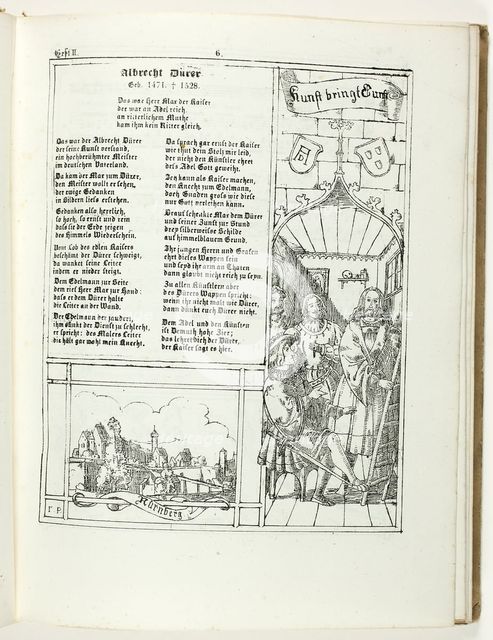 Heft II.
6.
Albrecht Dürer
Geb. 1471. † 1528.
Das war Herr Max der Kaiser
der war an Adel reich,
an ritterlichem Muthe
kam ihm kein Ritter gleich.
Das war der Albrecht Dürer
der seine Kunst verstand,
ein hochberühmter Meister
im deutschen Vaterland.
Da kam Herr Max zum Dürer,
den Meister wollt er sehen,
der ewige Gedanken
in Bildern ließ erstehen.
Gedanken also herrlich,
so hoch, so ernst und rein
daß sie der Erde zeigen
des Himmels Wiederschein.
Vom Lob des edlen Kaisers
beschämt der Dürer schweigt,
da wanket seine Leiter
indem er nieder steigt.
Dem Edelmann zur Seite
dem rief Herr Max zur Hand:
daß er dem Dürer halte
die Leiter an der Wand.
Der Edelmann der zaudert,
ihm dünkt der Dienst zu schlecht,
er spricht: des Malers Leiter
die hält gar wohl mein Knecht.
Da sprach gar ernst der Kaiser
wie thut dein Stolz mir leid,
der nicht den Künstler ehret
deß Adel Gott geweiht.
Ich kann als Kaiser machen,
den Knecht zum Edelmann,
doch Gnaden groß wie diese
nur Gott verleihen kann.
Drauf schenkte Max dem Dürer
und seiner Zunft zur Stund
drey silberweiße Schilde
auf himmelblauem Grund.
Ihr jungen Herren und Grafen
ehrt dieses Wappen fein
und seyd ihr arm an Thaten
dann glaubt nicht reich zu seyn.
Zu allen Künstlern aber
des Dürers Wappen spricht:
wenn ihr nicht malt wie Dürer,
dann dünkt euch Dürer nicht.
Dem Adel und den Künsten
ist Demuth hohe Zier;
das lehret dich der Dürer,
der Kaiser sagt es hier.
Kunst bringt Gunst
Nürnberg
F. P.